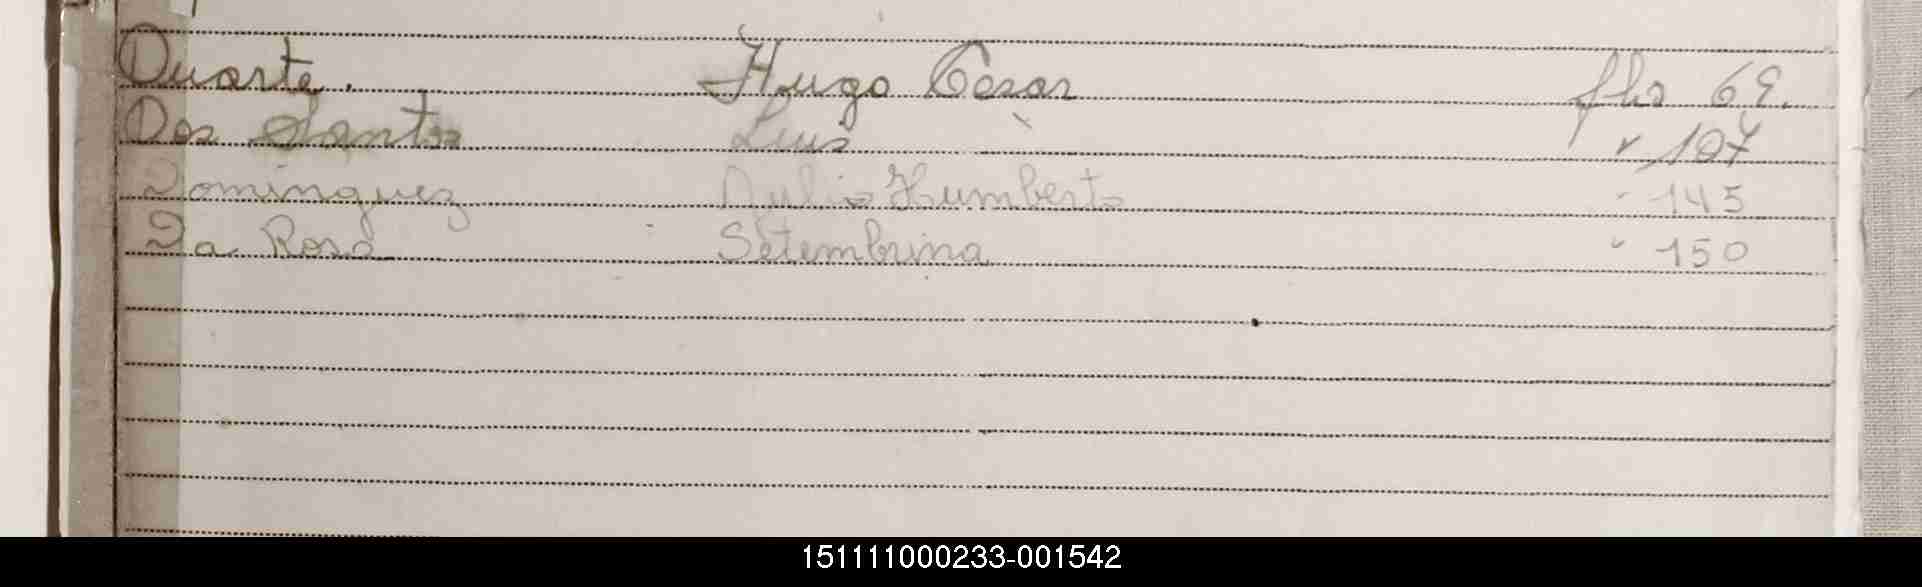 Duarte. Hugo Cesar fhs 69.
Dos Santos Luis " 107
Dominguez Humberto " 145
Da Rosa Setembrina " 150
151111000233-001542